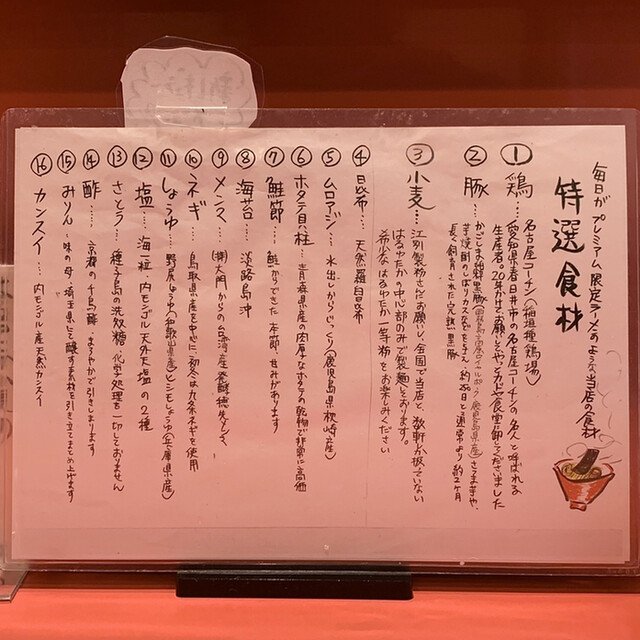 毎日が プレミアム 限定ラーメンのような 当店の食材
特選食材
① 鶏… 名古屋コーチン(稲垣種鶏場)
愛知県春日井市の名古屋コーチンの名人と呼ばれる
生産者。20年かけてお願いして、やっとカドヤ食堂に卸してくださいました
② 豚… かごしま伯特黒豚
芋焼酎のしぼりカスなどを与え、約250日と通常より約2ヶ月
長く飼育された完熟黒豚
③ 小麦… 江別製粉さんにお願いし、全国で当店と、数軒しか扱っていない
はるゆたかの中心部のみで製麺しております。
希少な はるゆたか一等粉をお楽しみください
④ 昆布… 天然羅臼昆布
⑤ ムロアジ… 水出しからじっくり(鹿児島県枕崎産)
⑥ ホタテ貝柱… 青森県産の肉厚なホタテの乾物で非常に高価
⑦ 鮭節… 鮭からできた本節、甘みがあります
⑧ 海苔… 淡路島沖
⑨ メンマ… (株)大門からの台湾産発酵
⑩ ネギ… 鳥取県産を中心に初冬は九条ネギを使用
⑪ しょうゆ… 野尻しょうゆ(和歌山県産)とニモしょうゆ(兵庫県産)
⑫ 塩… 海一粒 内モンゴル天外天塩の2種
⑬ さとう… 種子島の洗双糖、化学処理を一切しておりません
⑭ 酢… 京都の千鳥酢、まろやかで引きしまります
⑮ みりん… 味の母、埼玉県にて醸す 素材を引き立てまとめ上げます
⑯ カンスイ… 内モンゴル産天然カンスイ